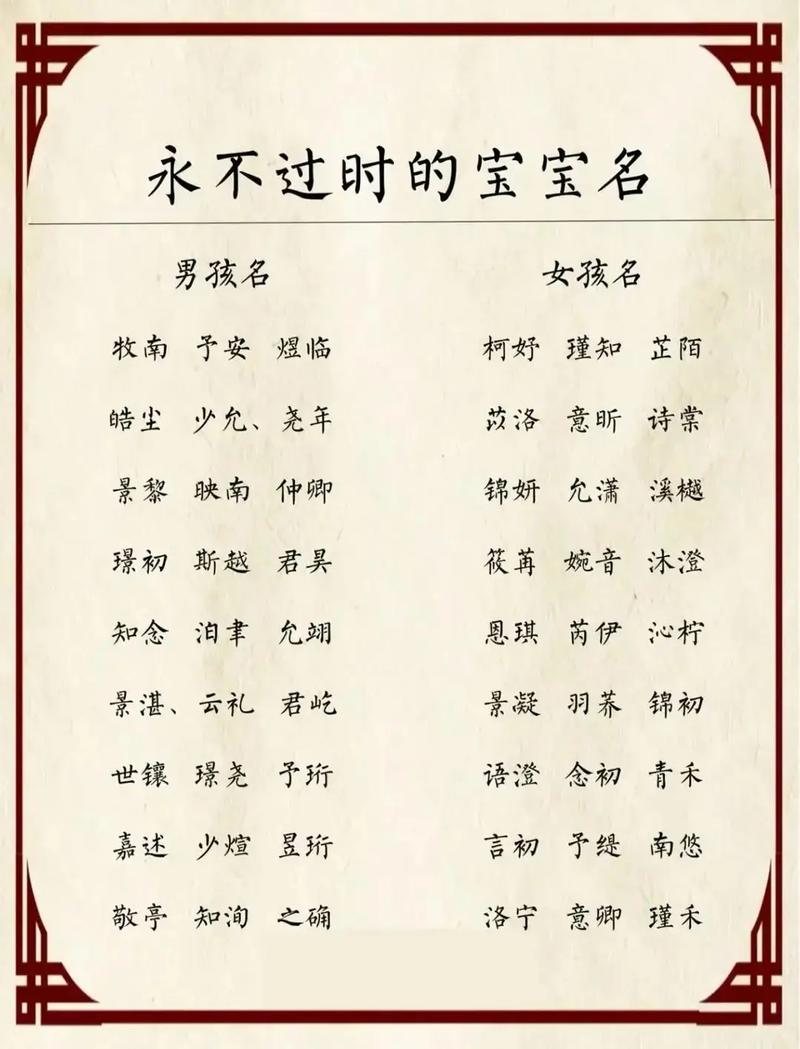 永不过时的宝宝名
男孩名
牧南 予安 煜临
皓尘 少允、尧年
景黎 映南 仲卿
璟初 斯越 君昊
知念 泊聿 允翊
景湛、云礼 君屹
世镶 璟尧 予珩
嘉述 少煊 昱珩
敬亭 知洵 之确
女孩名
柯妤 瑾知 芷陌
苡洛 意昕 诗棠
锦妍 允潇 溪樾
筱苒 婉音 沐澄
恩琪 芮伊 沁柠
景凝 羽荞 锦初
语澄 念初 青禾
言初 予缇 南悠
洛宁 意卿 瑾禾